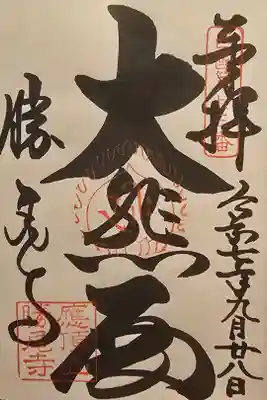 奉拝
令和七年九月廿八日
大悲殿
勝尾寺
應頂山
勝尾寺